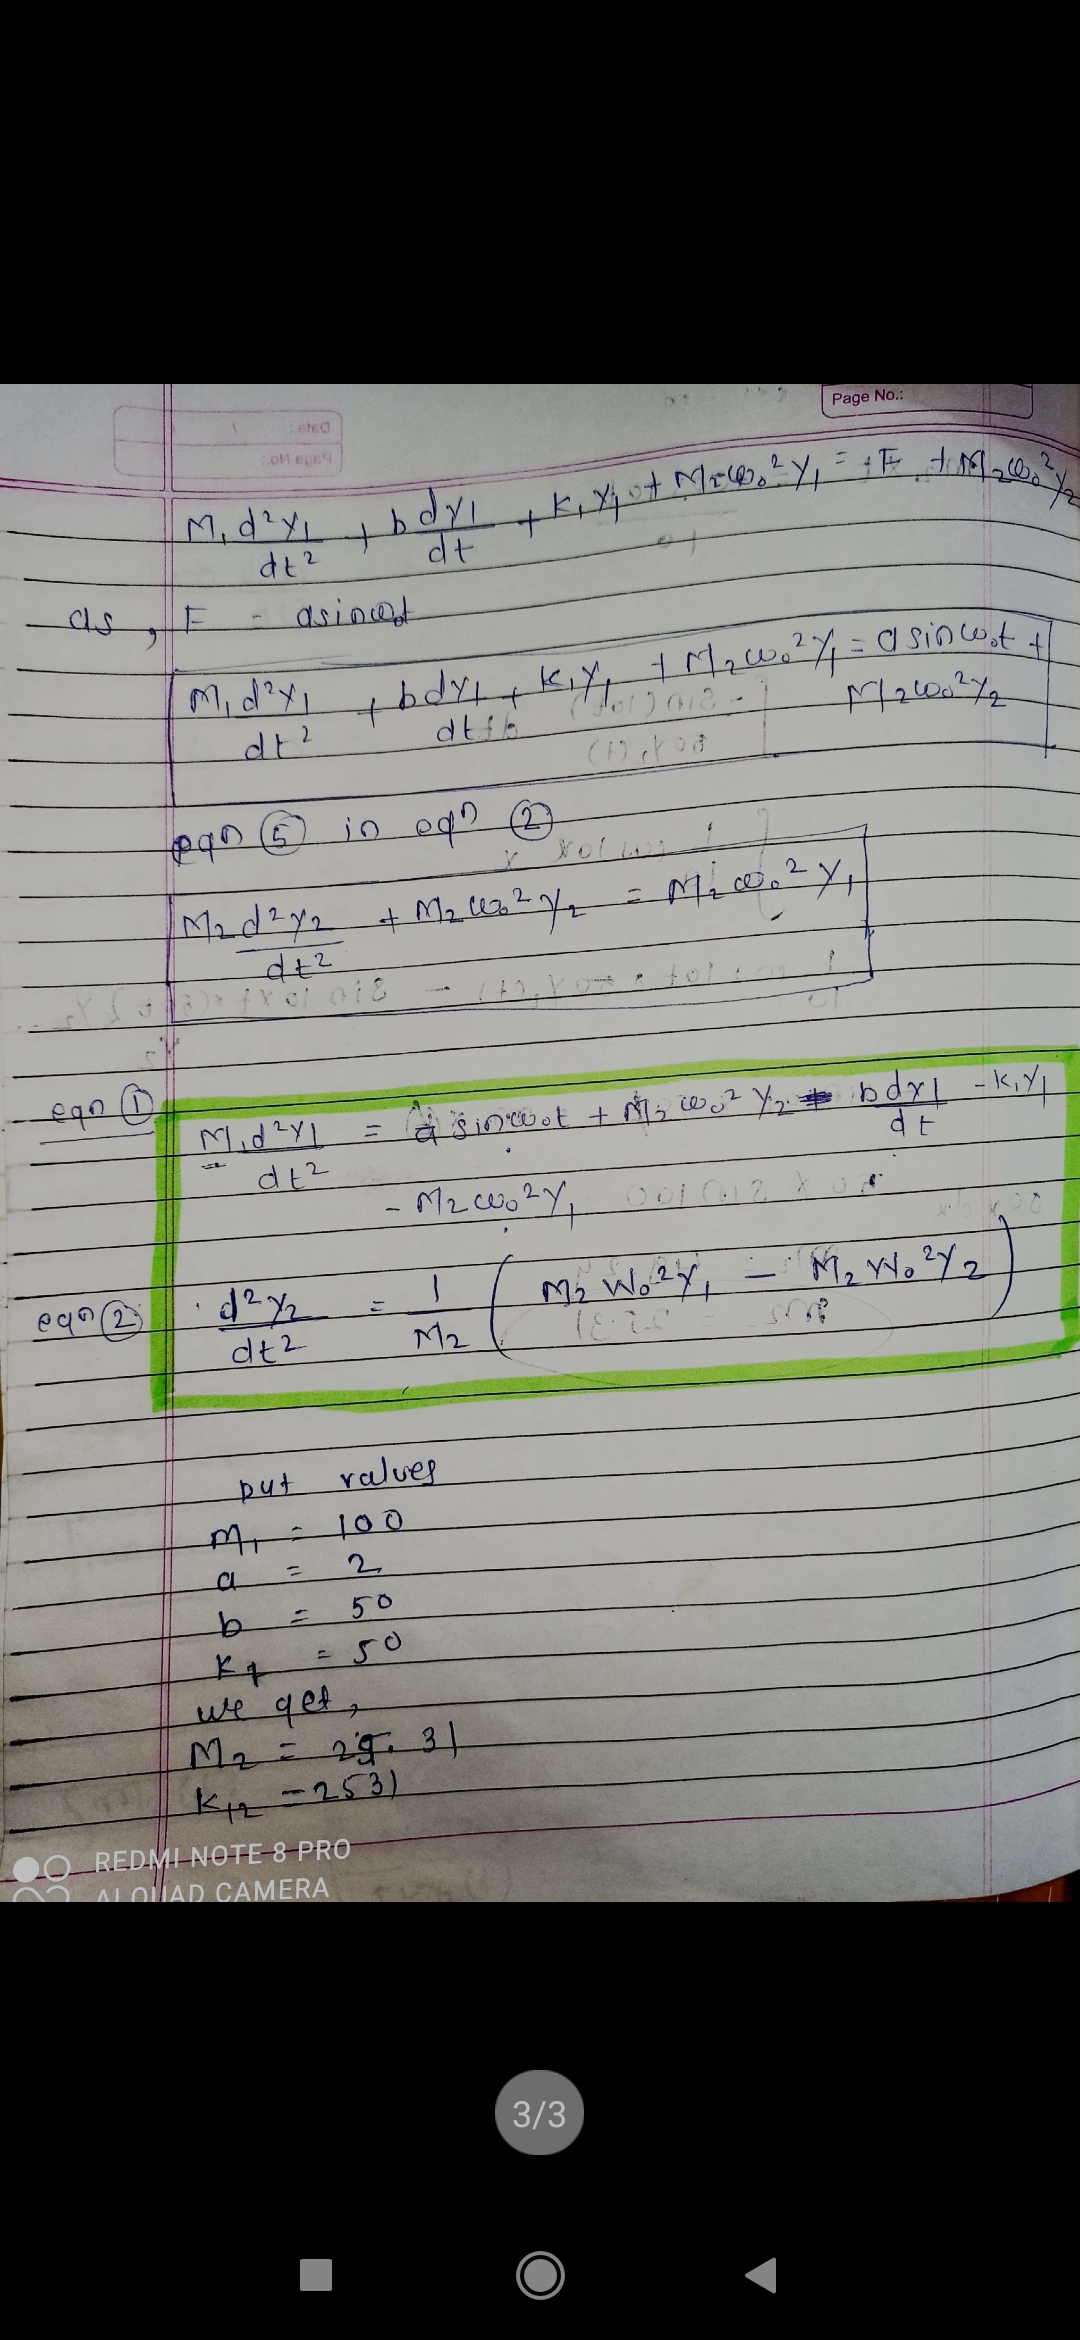 Page No.:
M₁ d²y₁/dt² + b dy₁/dt + K₁y₁ + M₂ω₀²y₁ = F + M₂ω₀²y₂
as, F = a sinω₀t
M₁ d²y₁/dt² + b dy₁/dt + K₁y₁ + M₂ω₀²y₁ = a sinω₀t +
M₂ω₀²y₂
eqn ⑤ in eqn ②
M₂ d²y₂/dt² + M₂ω₀²y₂ = M₂ω₀²y₁
eqn ① M₁ d²y₁/dt² = a sinω₀t + M₂ω₀²y₂ - b dy₁/dt - K₁y₁
- M₂ω₀²y₁
eqn ② d²y₂/dt² = 1/M₂ (M₂W₀²y₁ - M₂W₀²y₂)
put values
M₁ = 100
a = 2
b = 50
K₁ = 50
we get,
M₂ = 25.31
K₁₂ = 2531
REDMI NOTE 8 PRO
AI QUAD CAMERA
3/3